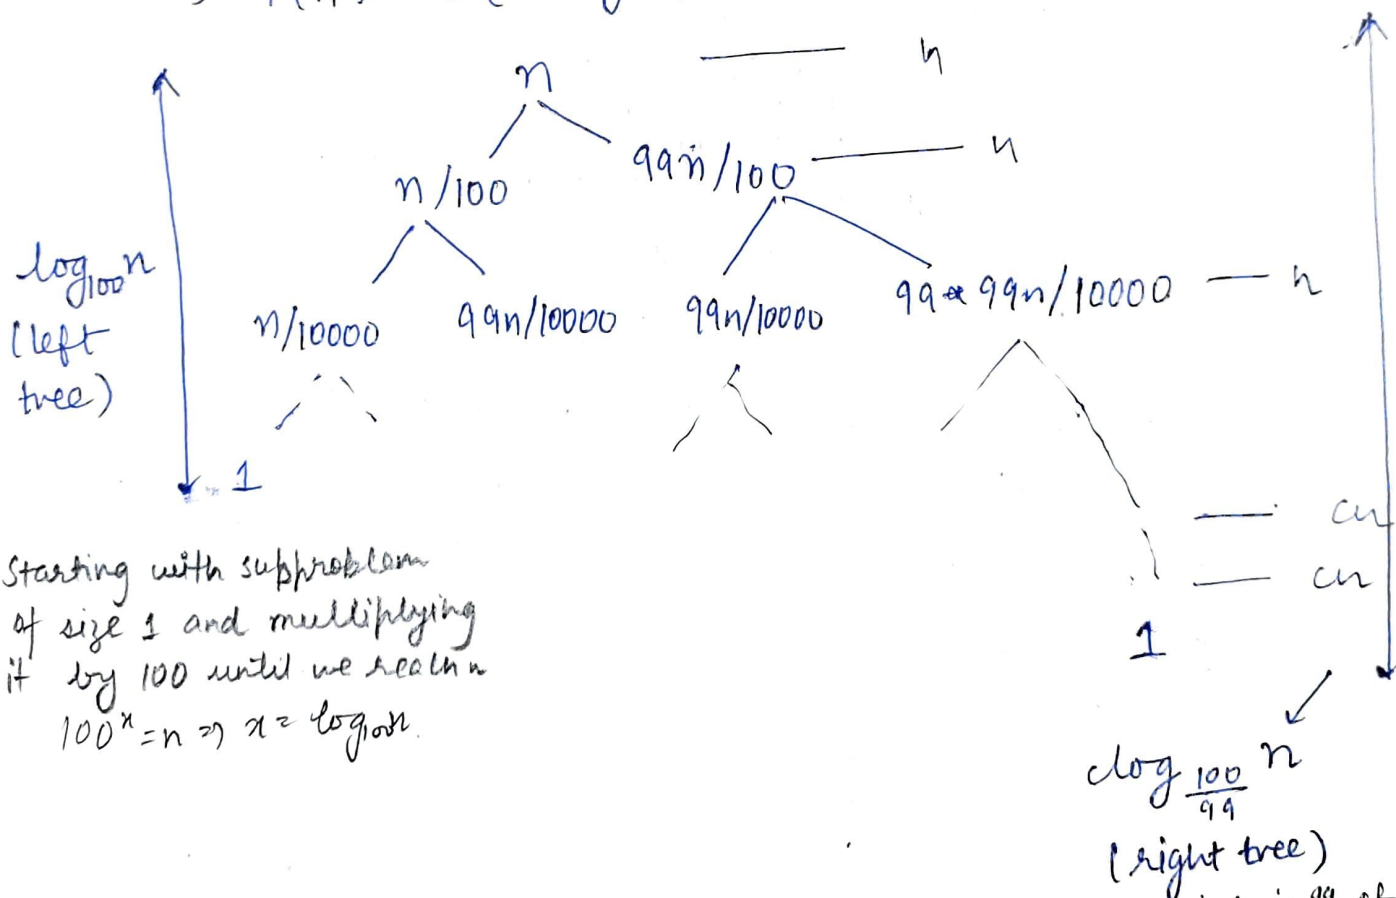 n — n
n/100 99n/100 — n
n/10000 99n/10000 99n/10000 99 * 99n/10000 — n
log₁₀₀n
(left
tree)
1
— cn
— cn
1
Starting with subproblem
of size 1 and multiplying
it by 100 until we reach n
100ˣ = n => x = log₁₀₀n.
clog 100/99 n
(right tree)